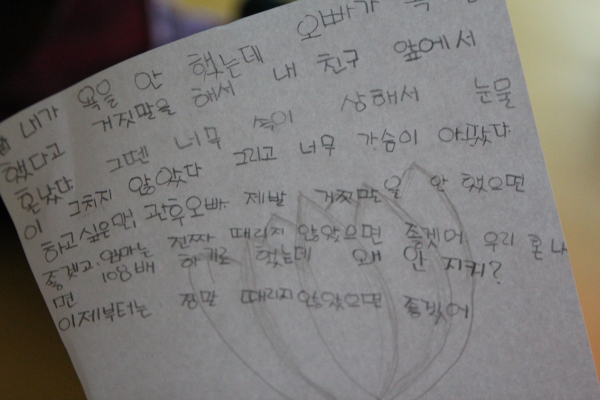 내가 욕을 안 했는데 오빠가
했다고 거짓말을 해서 내 친구 앞에서
혼났다 그뗀 너무 속이 상해서 눈물
이 그치지 않았다 그리고 너무 가슴이 아팠다
하고싶은말: 관후오빠 제발 거짓말을 안 했으면
좋겠고, 엄마는 진짜 때리지 않았으면 좋겟어 우리 혼나
면 108배 하기로 했는데 왜 안 지켜?
이제부터는 정말 때리지않았으면 좋겠어